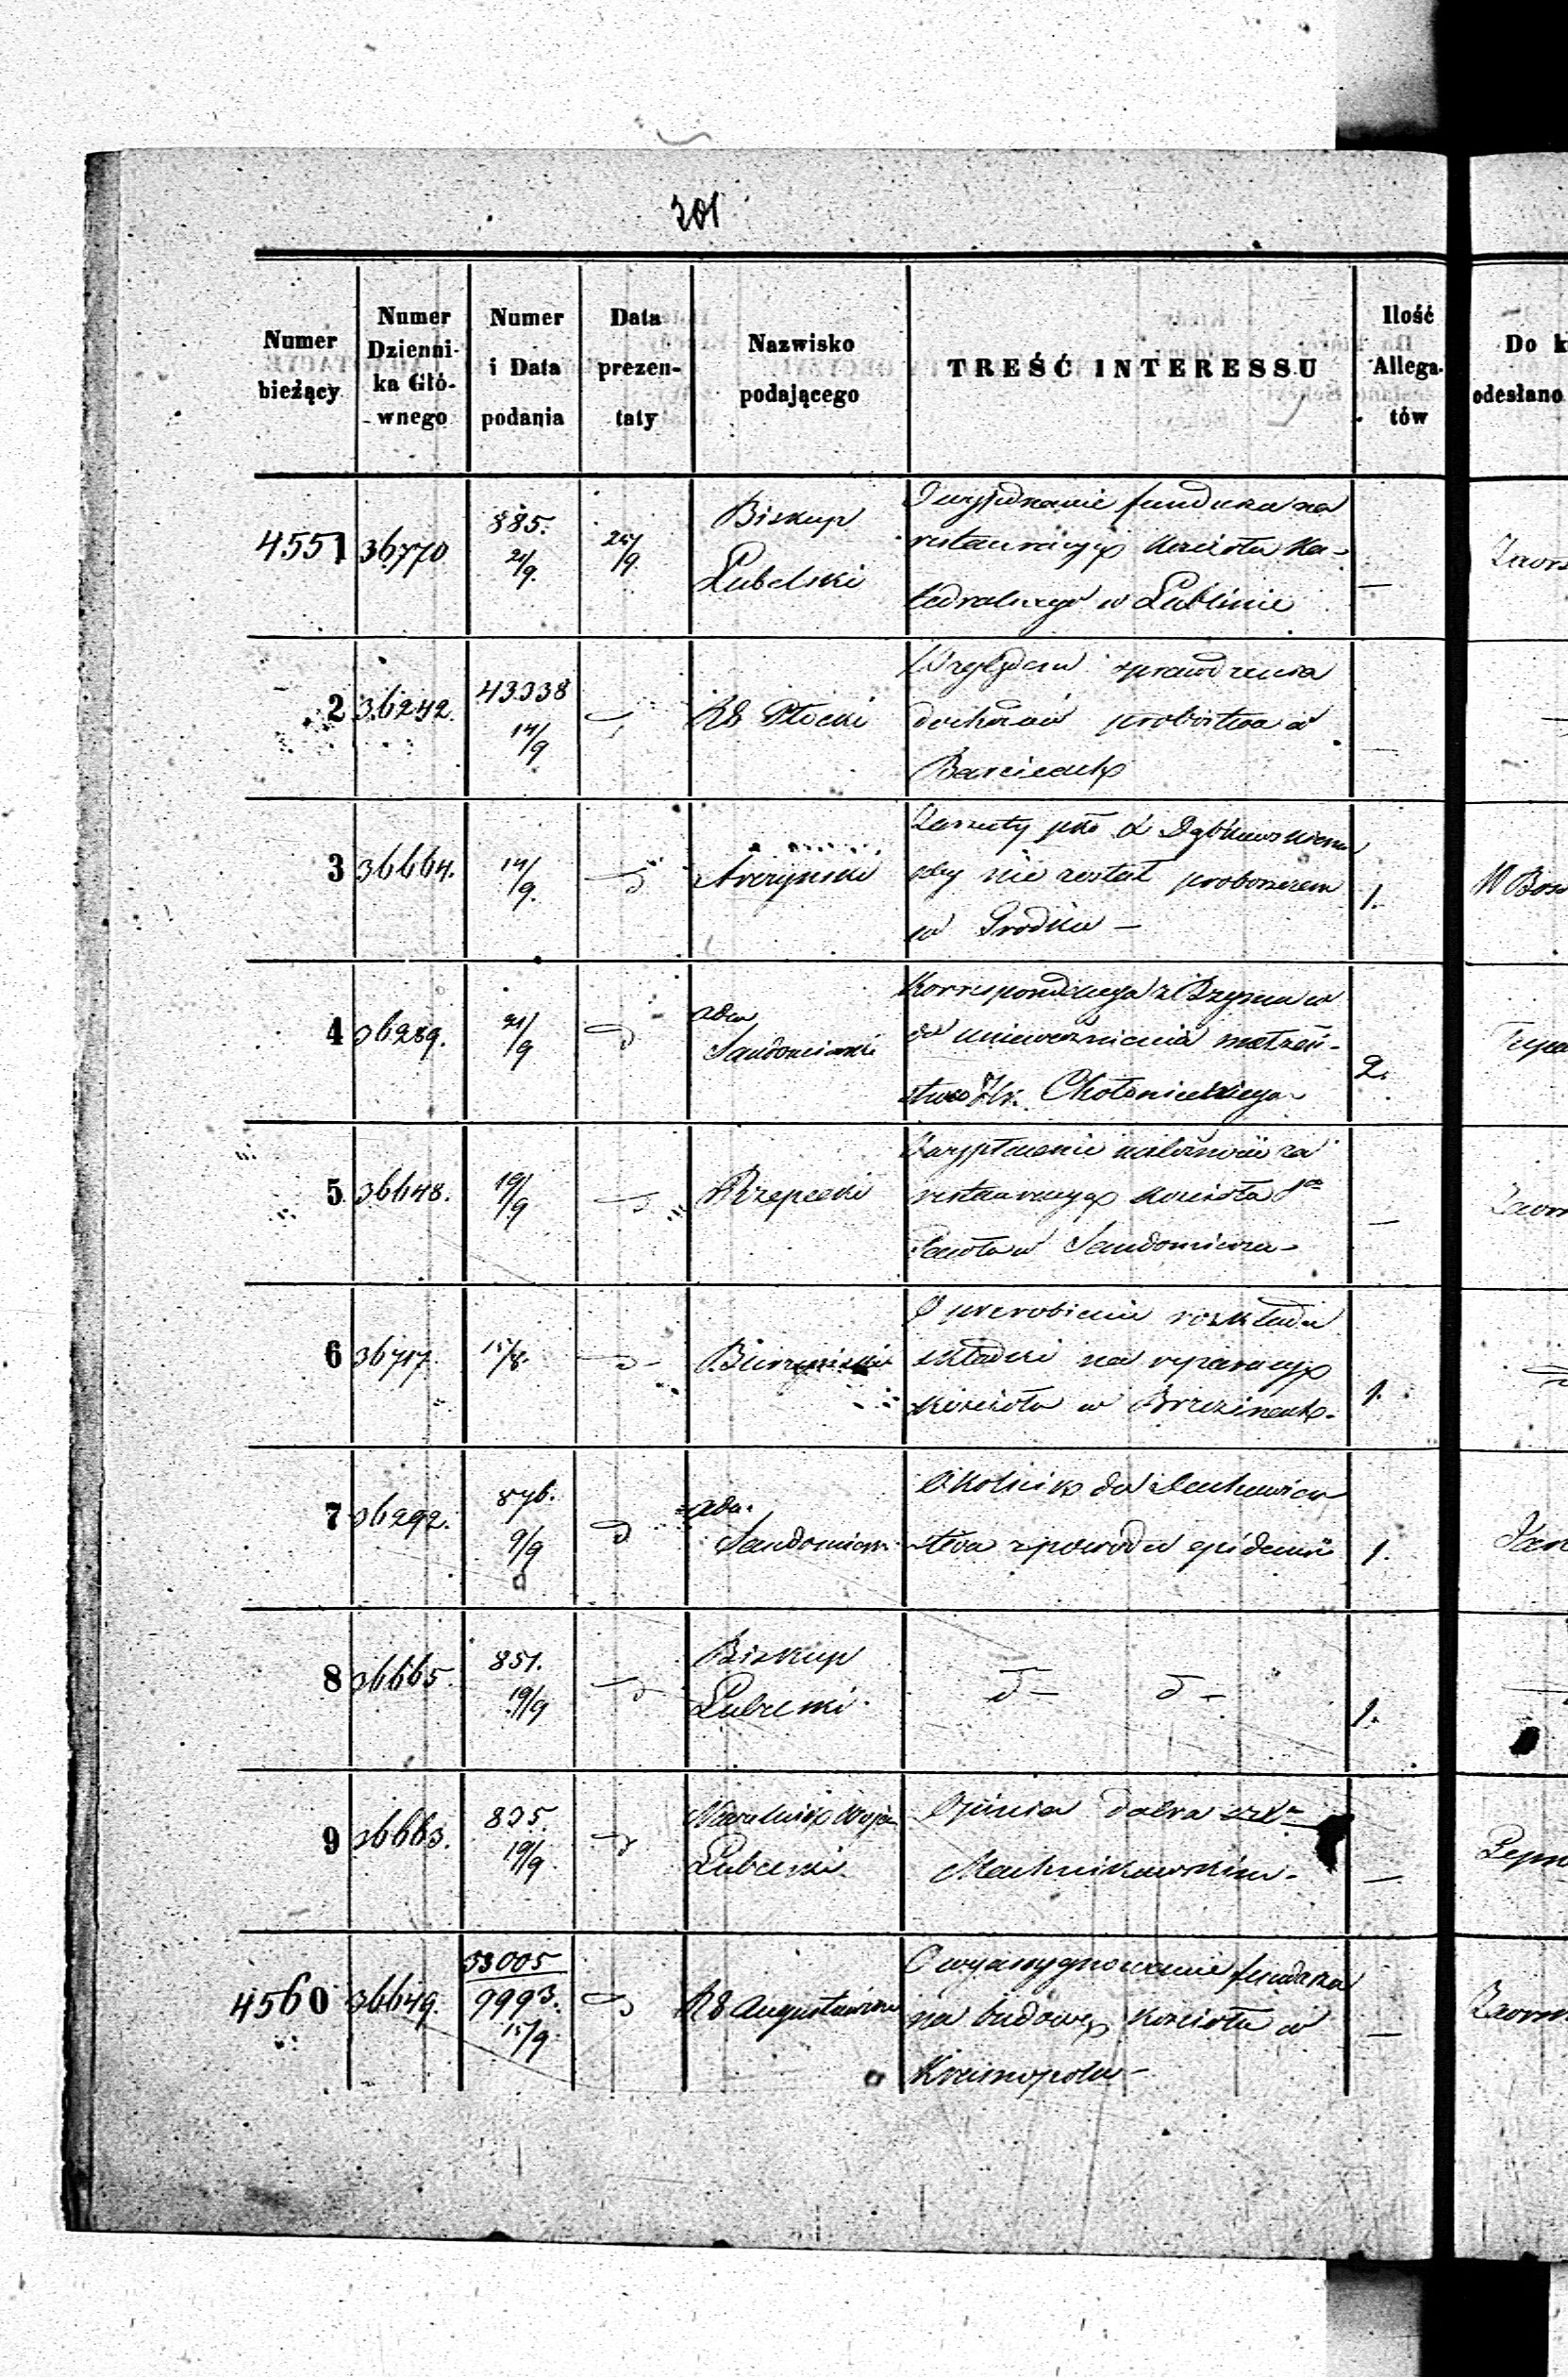 201
Numer bieżący
Numer Dzienni-ka Głó-wnego
Numer i Data podania
Data prezen-taty
Nazwisko podającego
TREŚĆ INTERESSU
Ilość Allega-tów
Do k
odesłano
4551 36770 885. 21/9. 25/9 Biskup Lubelski
O wyjednanie funduszu na
restauracyę Kościoła Ka-
tedralnego w Lublinie —
2 36242. 43338 14/9 d RG Płocki
Względem sprawdzenia
dochodów probostwa w
Barcicach —
3 36664. 14/9. d
Zarzuty pko X Dąbkowskiemu
aby nie został proboszczem
w Grodku — 1.
4 36289. 21/9 d adm Sandomierski
Korrespondencya z Rzymem w
do unieważnienia małżeń-
stwa Hr. Chołoniewskiego 2.
5 36648. 19/9 d Rzepecki
O wypłacenie należności za
restauracyę Kościoła Sgo
Pawła w Sandomierzu — —
6 36717 15/8. d
O przerobienie rozkładu
składki na reparacyę
Kościoła w Brzezinach. 1.
7 36292. 876. 9/9 d adm. Sandomiers
Okólnik do Duchowień
stwa z powodu epidemii 1.
8 36665. 851. 19/9 d Biskup Lubelski
d — d — 1.
9 36663. 835. 19/9. d Naczelnik Wojen Lubelski
Opinia dobra
Machnikowskim. —
4560 36649. 53005 9993. 15/9. d RG Augustowski
O wyassygnowanie funduszu
na budowę Kościoła w
Krasnopolu — —